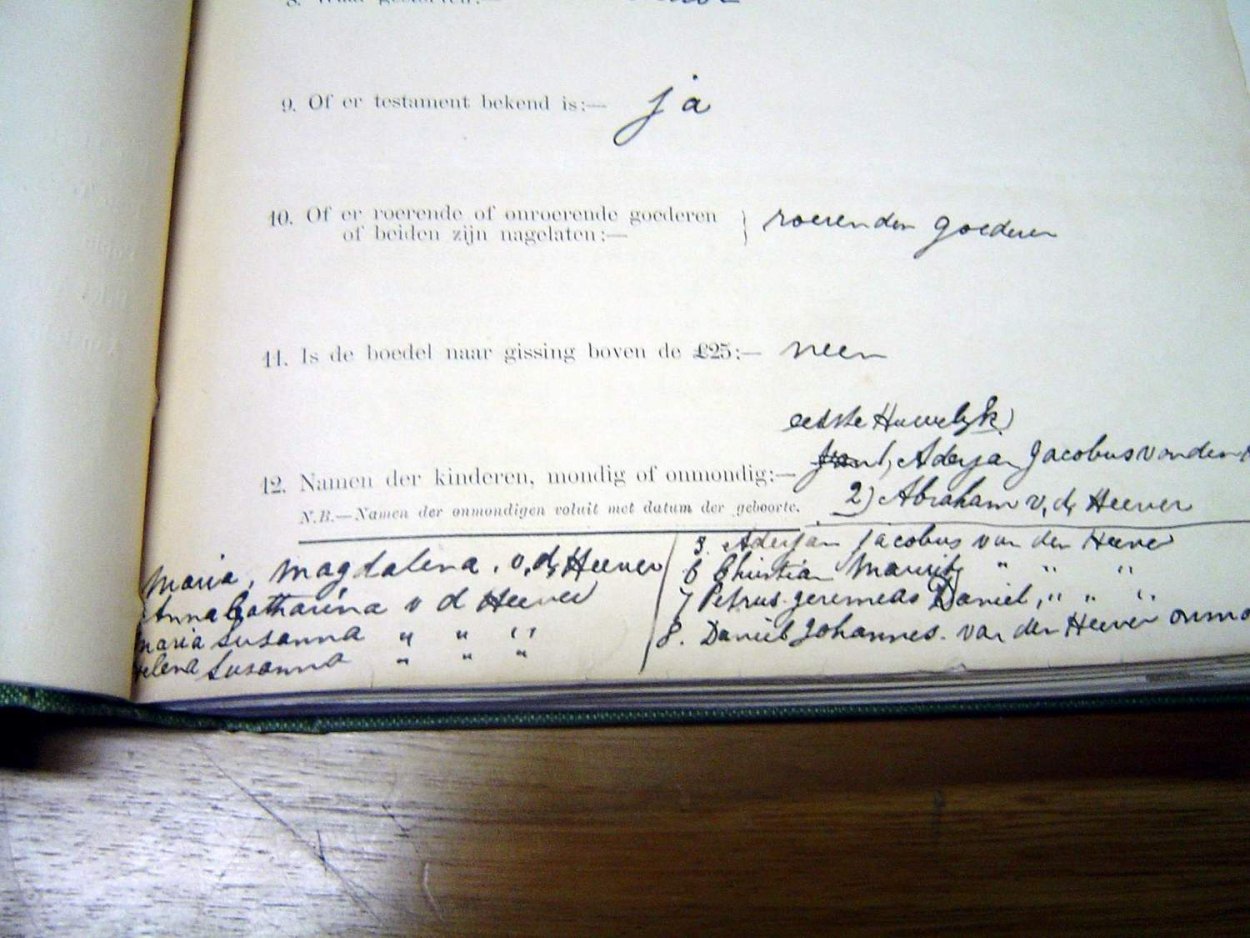 9. Of er testament bekend is:— ja
10. Of er roerende of onroerende goederen
of beiden zijn nagelaten:— } roerenden goederen
11. Is de boedel naar gissing boven de £25:— neen
eerste Huwelyk)
12. Namen der kinderen, mondig of onmondig:— Aderjan Jacobus van den
2) Abraham v, d, Heever
N.B.—Namen der onmondigen voluit met datum der geboorte.
Maria, Magdalena, v, d, Heever
Anna Catharina v d Heever
Maria Susanna " " "
Helena Susanna " " "
Aderjan Jacobus van den Heever
6 Christian Maurits " " "
7 Petrus Jeremeas Daniel, " " "
8. Daniel Johannes. van den Heever onmo